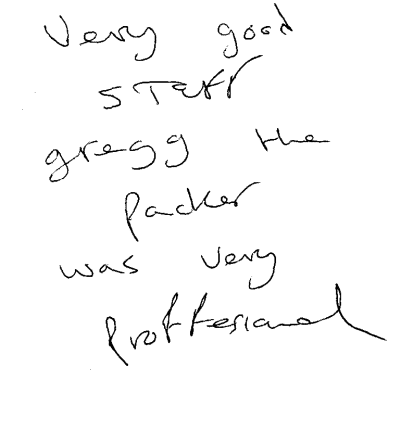 Very good
STAFF
gregg the
packer
was very
proffesional